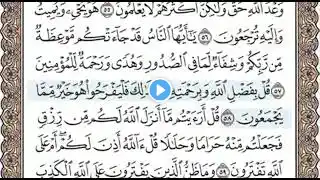 وَعْدَ ٱللَّهِ حَقٌّ وَلَٰكِنَّ أَكْثَرَهُمْ لَا يَعْلَمُونَ ٥٥ هُوَ يُحْيِۦ وَيُمِيتُ
وَإِلَيْهِ تُرْجَعُونَ ٥٦ يَٰٓأَيُّهَا ٱلنَّاسُ قَدْ جَآءَتْكُم مَّوْعِظَةٌ
مِّن رَّبِّكُمْ وَشِفَآءٌ لِّمَا فِى ٱلصُّدُورِ وَهُدًى وَرَحْمَةٌ لِّلْمُؤْمِنِينَ
٥٧ قُلْ بِفَضْلِ ٱللَّهِ وَبِرَحْمَتِهِۦ فَلْيَفْرَحُوا۟ هُوَ خَيْرٌ مِّمَّا
يَجْمَعُونَ ٥٨ قُلْ أَرَءَيْتُم مَّآ أَنزَلَ ٱللَّهُ لَكُم مِّن رِّزْقٍ
فَجَعَلْتُم مِّنْهُ حَرَامًا وَحَلَٰلًا قُلْ ءَآللَّهُ أَذِنَ لَكُمْ أَمْ عَلَى
ٱللَّهِ تَفْتَرُونَ ٥٩ وَمَا ظَنُّ ٱلَّذِينَ يَفْتَرُونَ عَلَى ٱللَّهِ ٱلْكَذِبَ